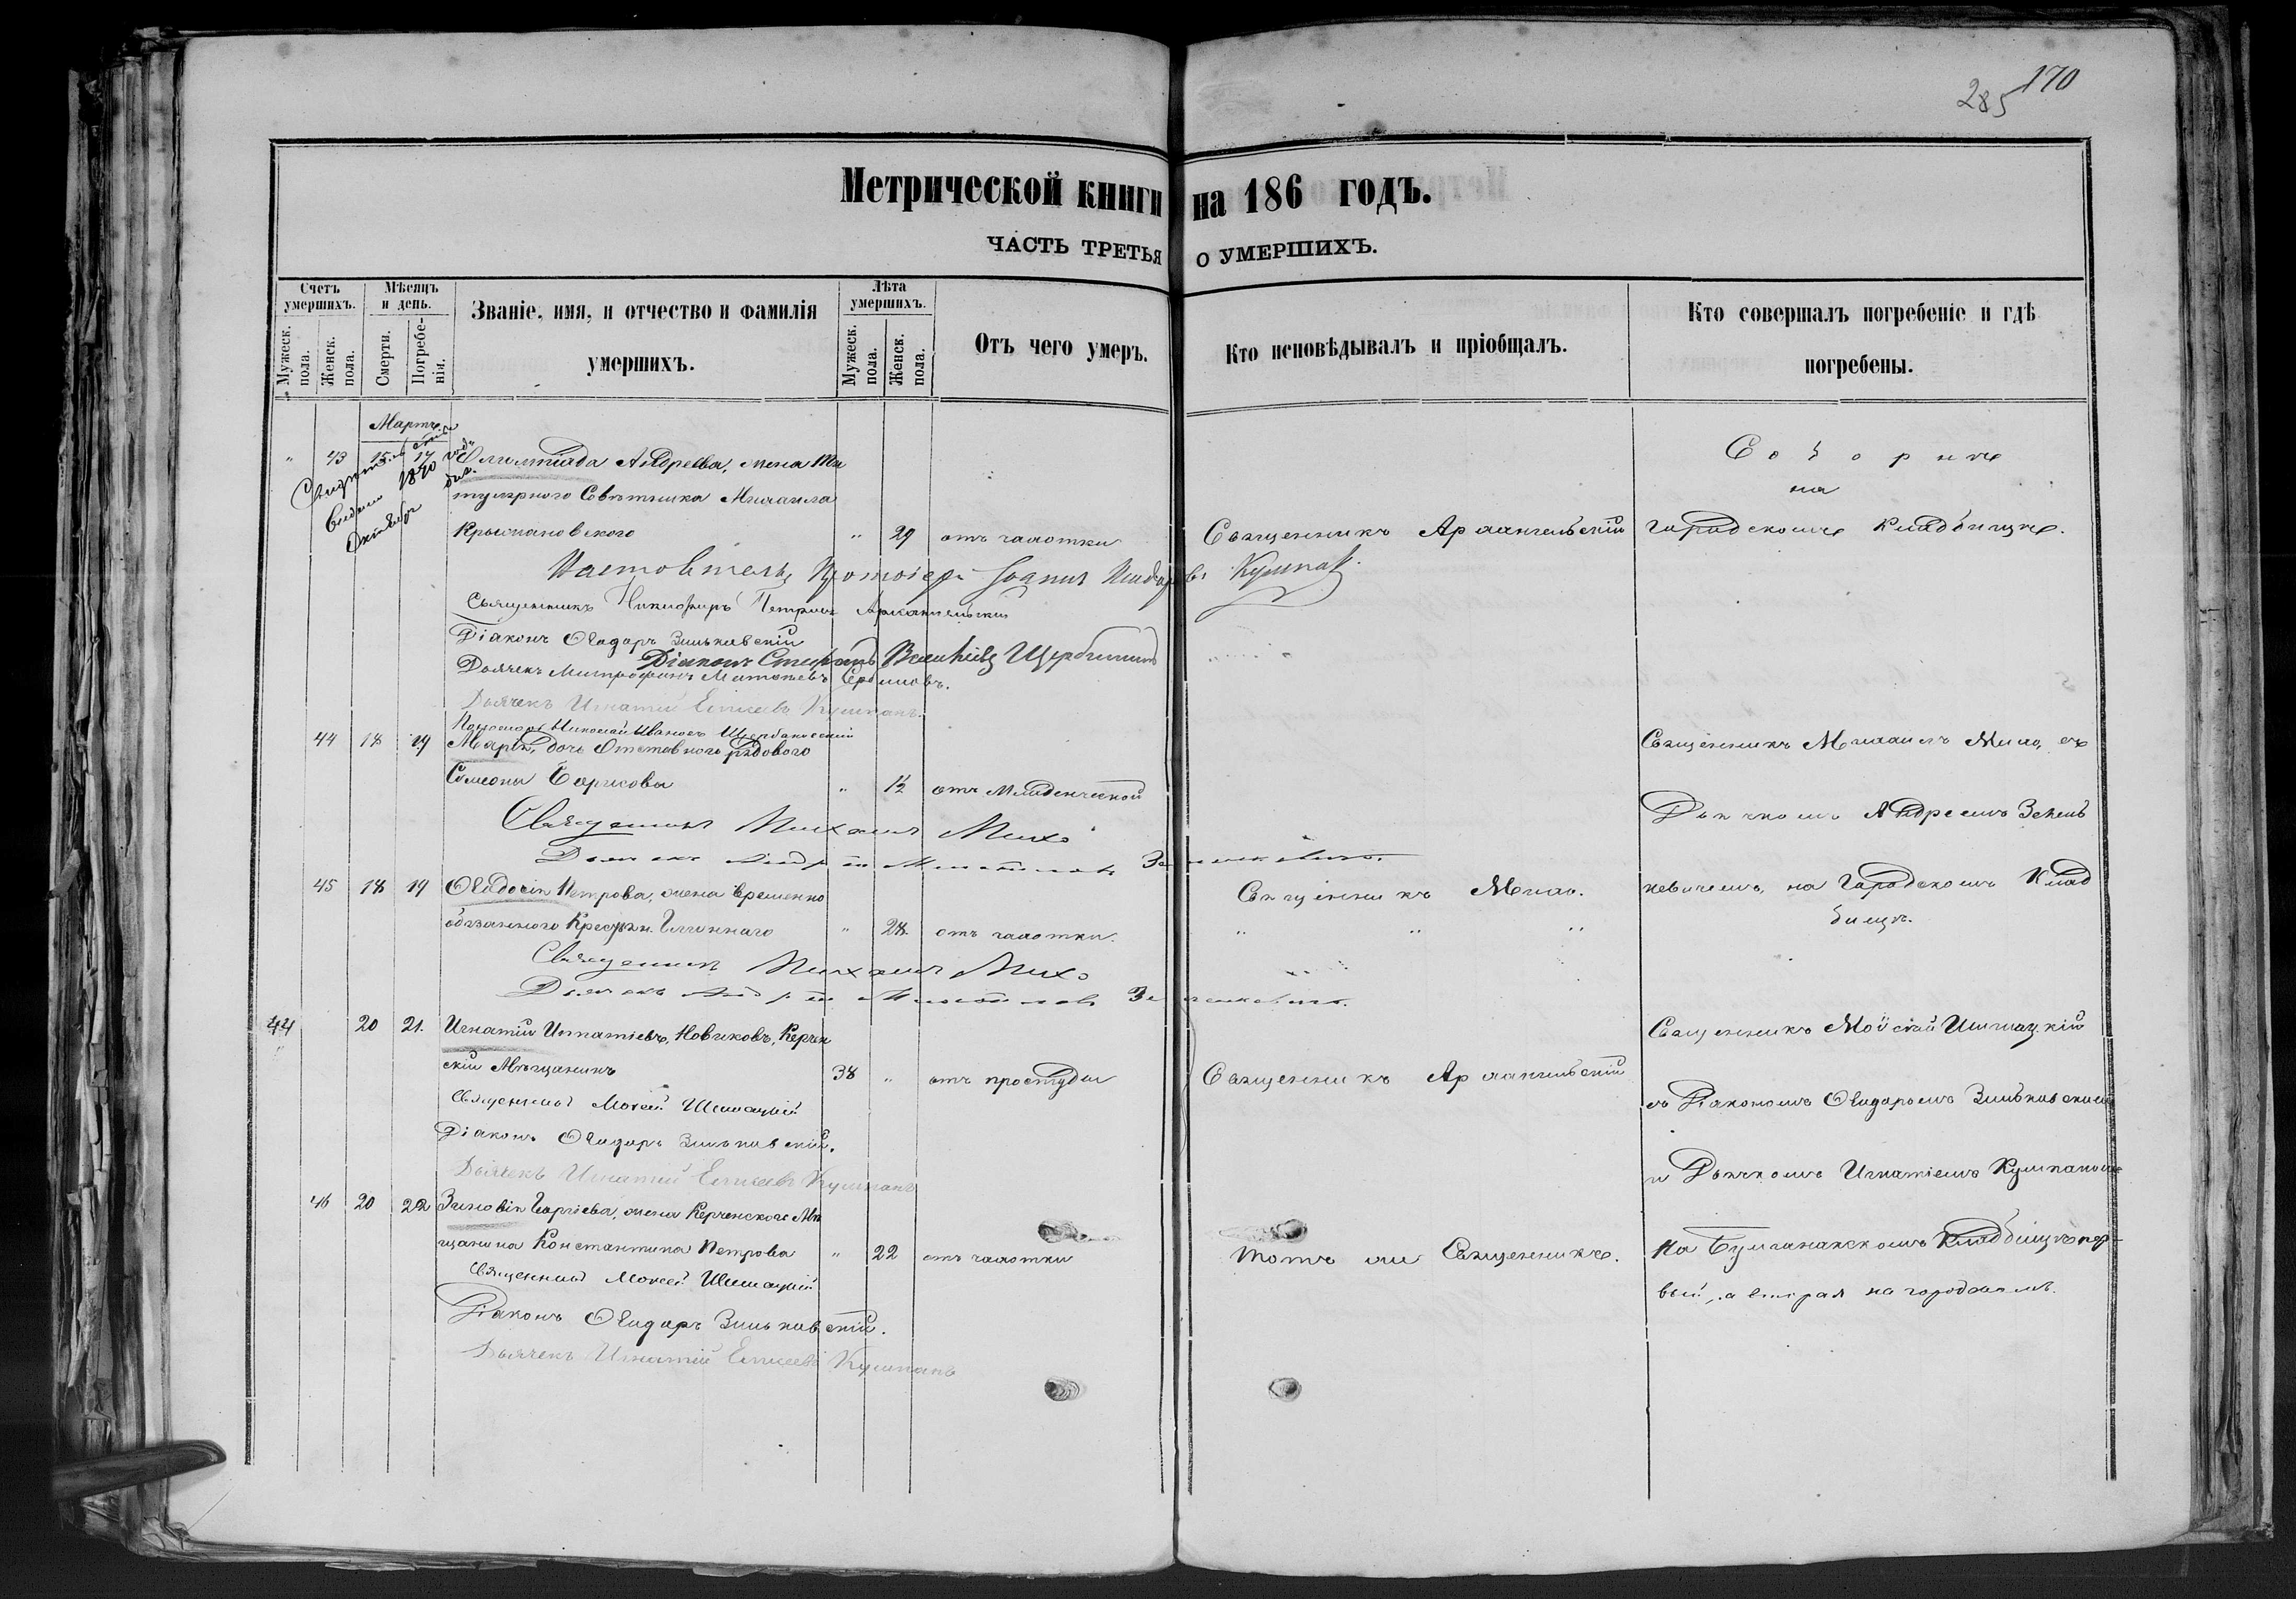 285 170
Метрической книги на 186 годъ.
ЧАСТЬ ТРЕТЬЯ О УМЕРШИХЪ.
Счетъ умершихъ.
Мужеск. пола.
Женск. пола.
Мѣсяцъ и день.
Смерти.
Погребенія.
Званіе, имя, и отчество и фамилія
умершихъ.
Лѣта умершихъ.
Мужеск. пола.
Женск. пола.
Отъ чего умеръ.
Кто исповѣдывалъ и пріобщалъ.
Кто совершалъ погребеніе и гдѣ
погребены.
Мартъ.
" 43 15 17 Олимпіада Андреева, жена Ти
тулярного Совѣтника Михаила
Крыжановского " 29 отъ чахотки Священникъ Архангельскій
Соборнѣ
на
городскомъ кладбищѣ.
Настоятель, Протоіерей Іоаннъ Кумпан
Священникъ Никифоръ Петровъ Архангельскій
Діаконъ Ѳеодоръ Зиньковскій
Діаконъ Стефанъ Щербина
Дьячекъ Митрофанъ
Дьячекъ Игнатій Елисеевъ Кумпанъ.
Пономарь Николай Ивановъ Щербаковскій
44 18 19 Марія, дочь Отставного рядового
Симеона Борисова " ½ отъ Младенческой
Священникъ Михаилъ Михо, съ
Священникъ Михаилъ Михо
Дьячкомъ Андреемъ Зенкъ
Дьячекъ Андрей
45 18 19 Ѳеодосія Петрова, жена временно
обязанного Крестьян.
" 28 отъ чахотки.
Священникъ Михо.
кевичемъ, на Городскомъ Клад
бищѣ.
Священникъ Михаилъ Михо
Дьячекъ Андрей
44 20 21. Игнатій Игнатіевъ, Новиковъ, Керчен
скій Мѣщанинъ 38 " отъ простуды Священникъ Архангельскій
Священникъ Моисей Шишацкій
съ Діакономъ Ѳеодоромъ Зиньковскимъ
и Дьячкомъ Игнатіемъ Кумпаномъ
Священникъ Моисей Шишацкій
Діаконъ Ѳеодоръ Зиньковскій.
Дьячекъ Игнатій Елисеевъ Кумпанъ
46 20 22 Зиновія Георгіева, жена Керченскаго Мѣ
щанина Константина Петрова " 22 отъ чахотки Тотъ же Священникъ.
на Булганакскомъ кладбищѣ пер-
вый, а вторая на городскомъ.
Священникъ Моисей Шишацкій
Діаконъ Ѳеодоръ Зиньковскій.
Дьячекъ Игнатій Елисеевъ Кумпанъ